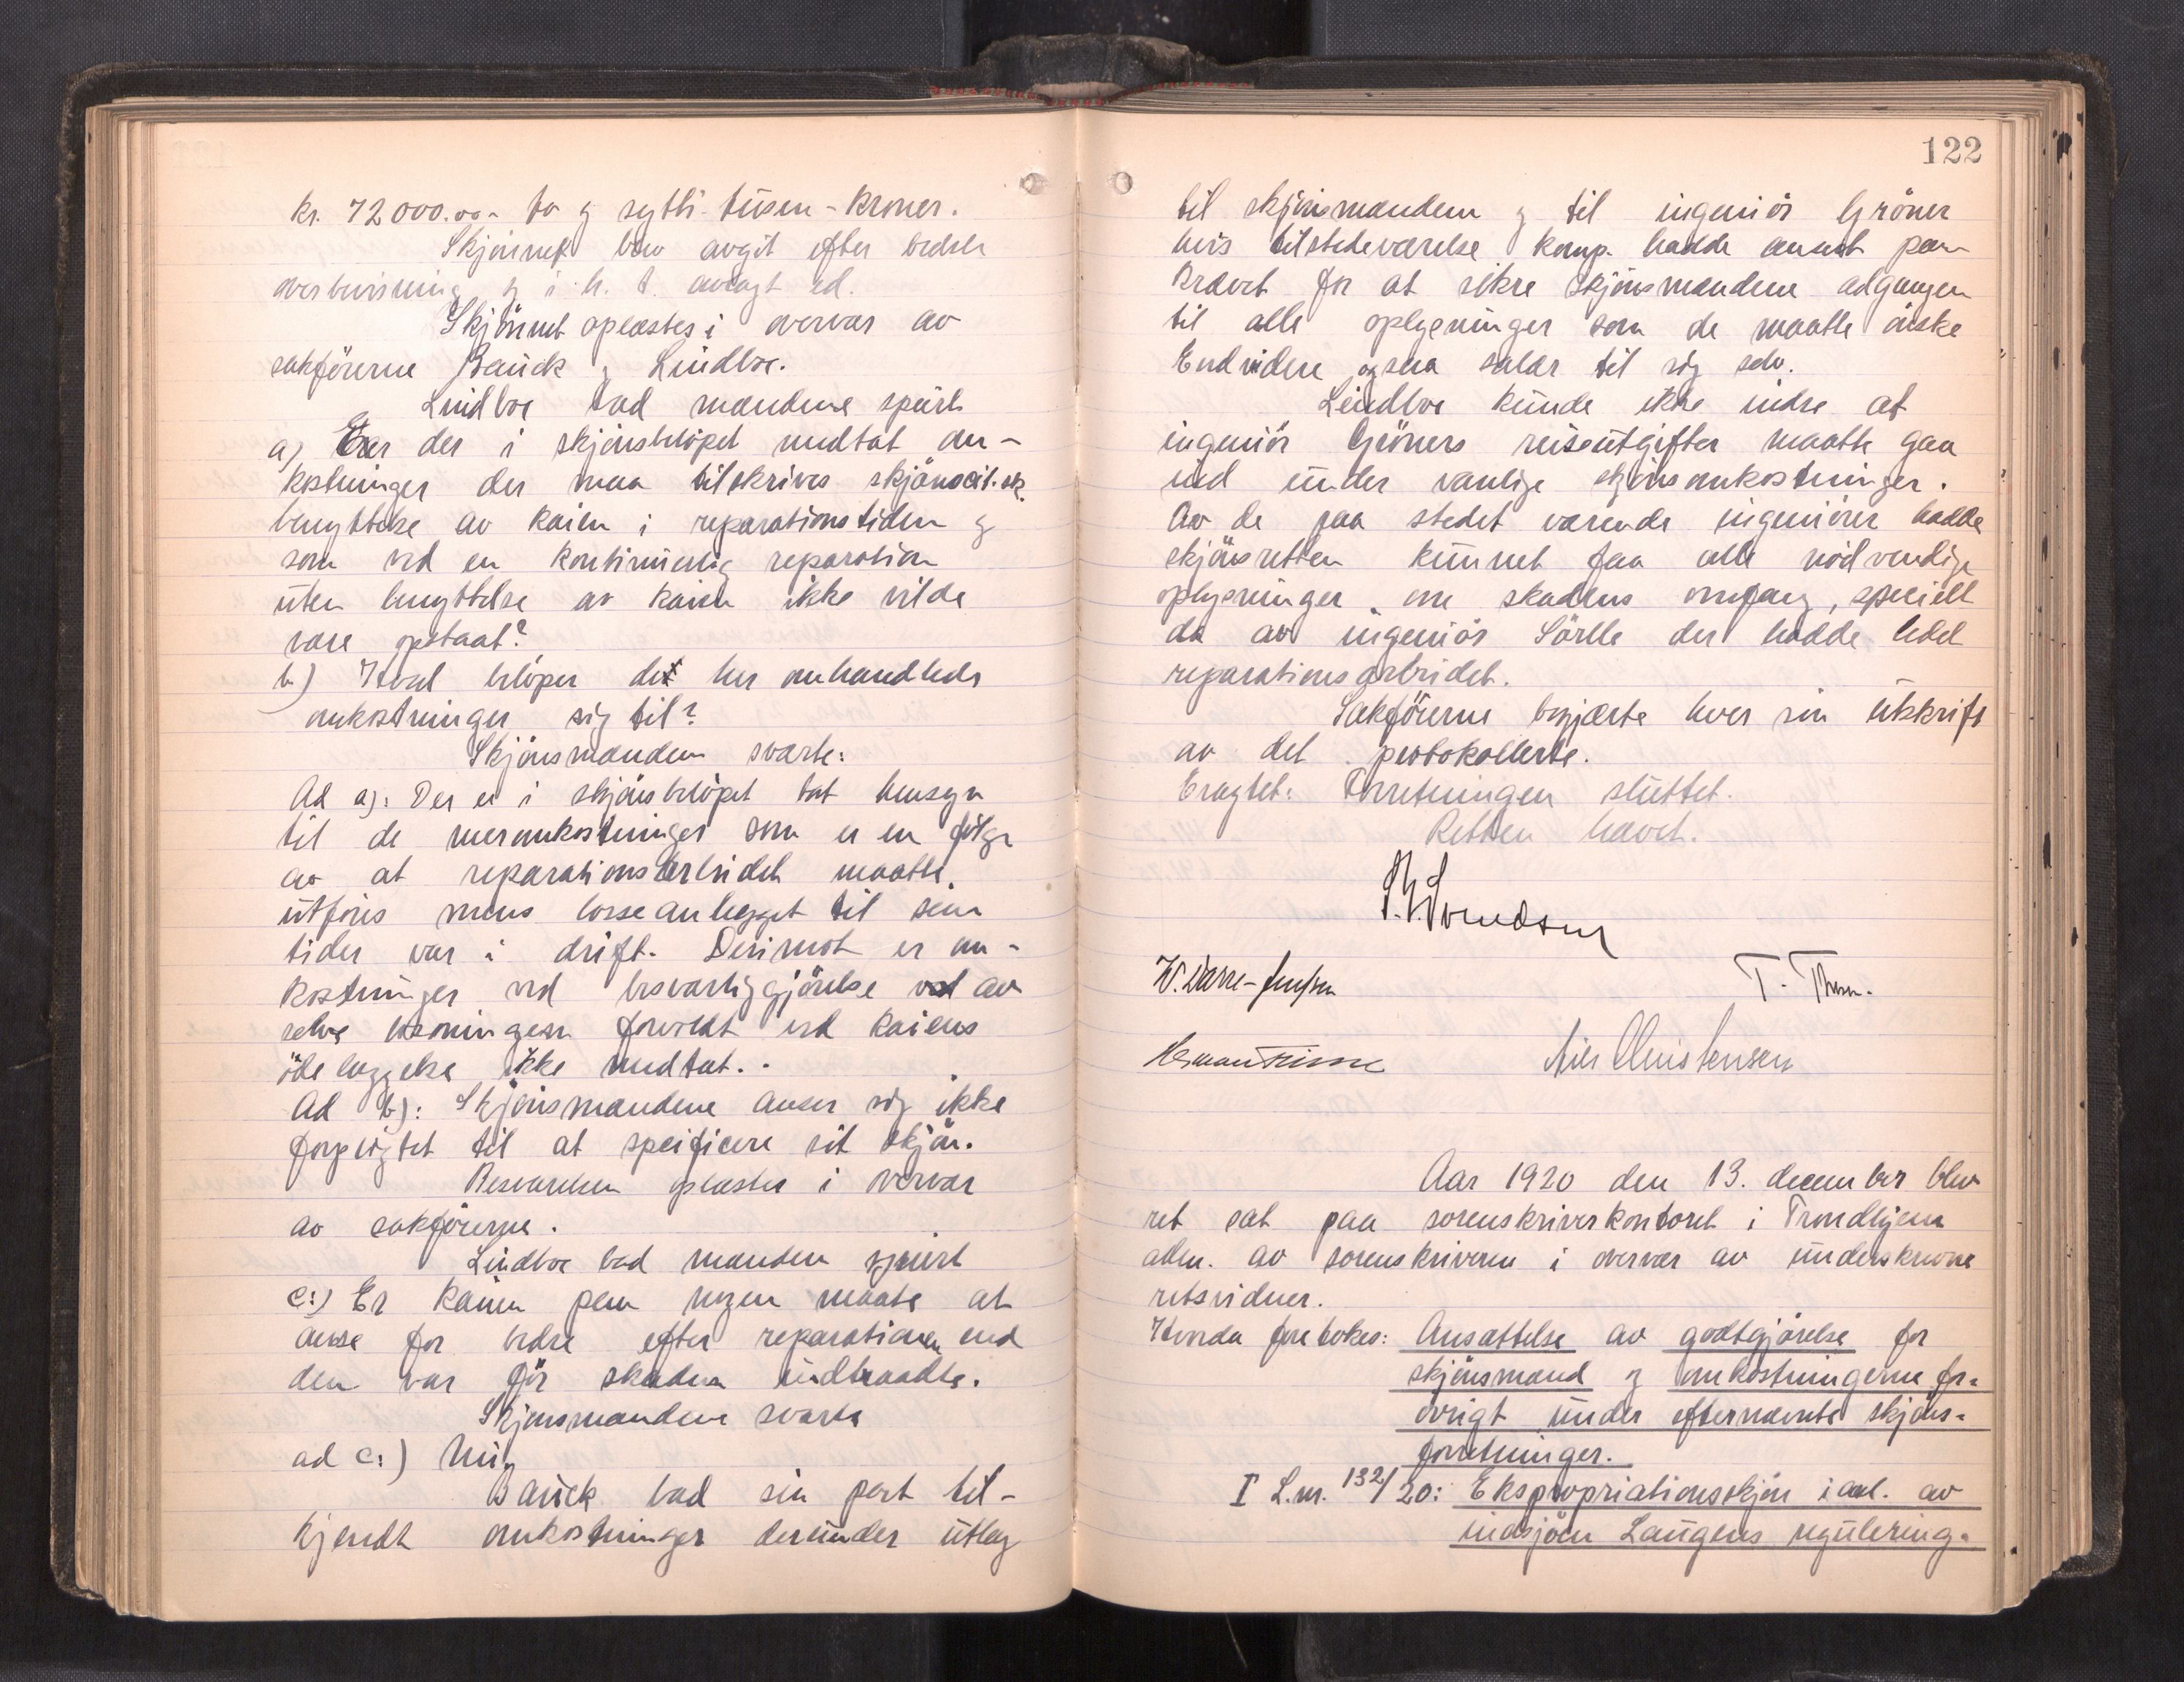 kr. 72000.00 - to og sytti tusen - kroner.
Skjönnet blev avgit efter bedste
overbevisning og i h. t. avlagt ed.
Skjönnet oplæstes i overvær av
sakförerne Bauck og Lindboe.
Lindboe bad mændene spurt
a) Er der i skjönsbelöpet medtat om-
kostninger der maa tilskrives
benyttelse av kaien i reparationstiden og
som ved en kontinuerlig reparation
uten benyttelse av kaien ikke vilde
være opstaat?
b) Hvad belöper det her omhandlede
omkostninger sig til?
Skjönsmændene svarte:
Ad a): Der er i skjönsbelöpet tat hensyn
til de meromkostninger som er en følge
av at reparationsarbeidet maatte
utføres mens losseanlegget til sine
tider var i drift. Derimot er om-
kostninger ved besværliggjörelse ved av
selve losningen forvoldt ved kaiens
ödeleggelse ikke medtat.
Ad b): Skjönsmændene anser sig ikke
forpligtet til at specificere sit skjön.
Besvarelsen oplæstes i overvær
av sakförerne.
Lindboe bad mændene spurt
c:) Er kaien paa nogen maate at
ansse for bedre efter reparationen end
den var før skaden indtraadte.
Skjønsmændene svarte
ad c:) Nei.
Bauck bad sin part til-
kjendt omkostninger derunder utlæg
122
til skjönsmændene og til ingeniör Gröner
hvis tilstedeværelse komp. hadde anset paa-
krævet for at sikre skjönsmændene adgangen
til alle oplysninger som de maatte önske
Endvidere ogsaa salær til sig selv.
Lindboe kunde ikke indse at
ingeniör Gröners reiseutgifter maatte gaa
ind under vanlige skjönsomkostninger.
Av de paa stedet værende ingeniörer hadde
skjönsretten kunnet faa alle nödvendige
oplysninger om skadens omfang, specielt
da av ingeniör Sörlle der hadde ledet
reparationsarbeidet.
Sakförerne begjærte hver sin utskrift
av det protokollerte.
Eragtet: Forretningen sluttet.
Retten hævet.
Svendsen
W. Darre-Jenssen
T. Thun.
Nils Christensen
Aar 1920 den 13. december blev
ret sat paa sorenskriverkontoret i Trondhjem
adm. av sorenskriveren i overvær av underskrevne
retsvidner.
Hvorda foretokes: Ansættelse av godtgjörelse for
skjönsmænd og omkostningerne for-
övrigt under efternævnte skjöns-
forretninger.
I L.nr. 132/20: Ekspropriationsskjön i anl. av
indsjöen Laugens regulering.